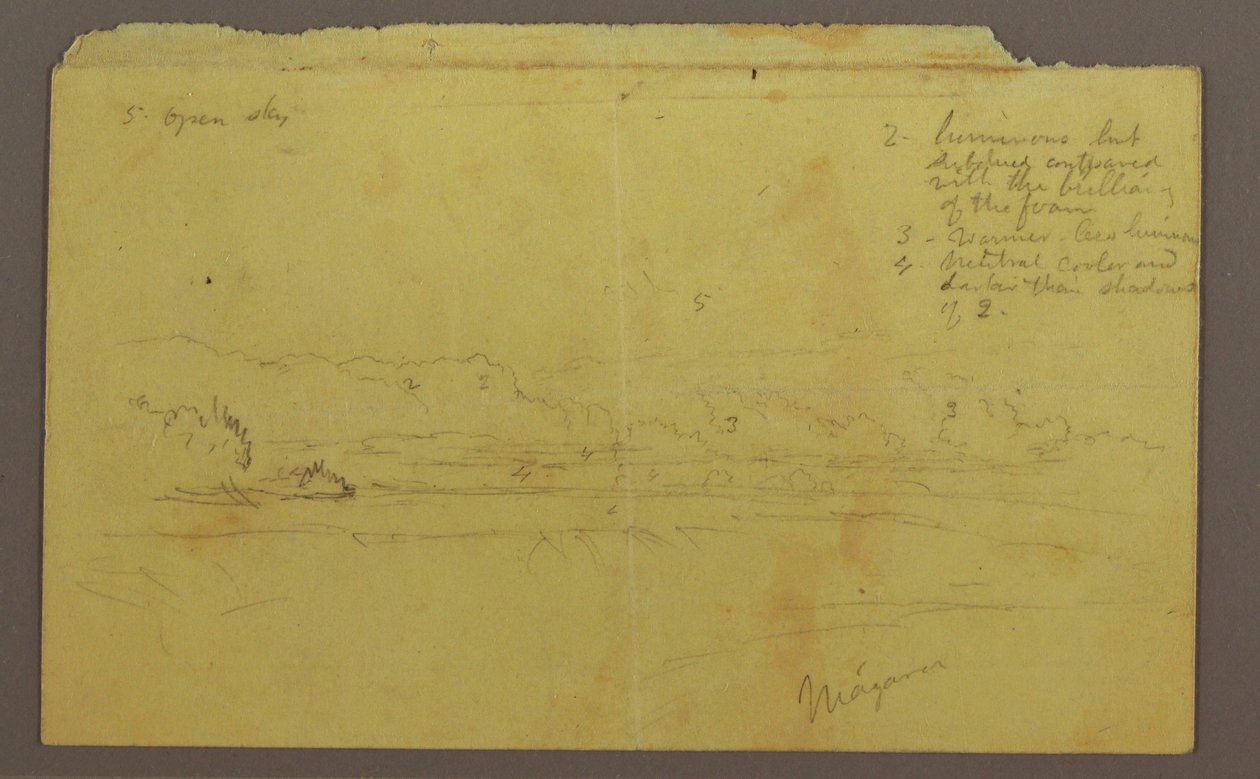 5. Open sky
2 - luminous but
subdued compared
with the brilliancy
of the foam
3 - Warmer - less luminous
4 - Neutral cooler and
darker than shadows
of 2.
5
2 2
3 3 2
4
4
Niagara